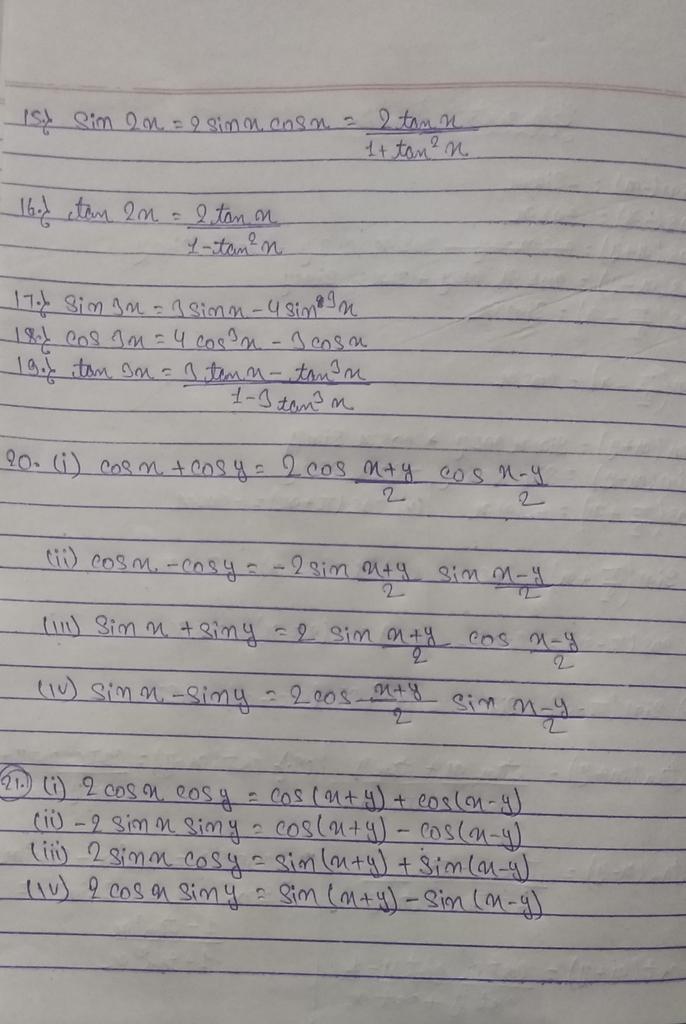 15.} sin 2x = 2 sin x cos x = 2 tan x / 1 + tan² x
16.} tan 2x = 2 tan x / 1 - tan² x
17.} sin 3x = 3 sin x - 4 sin³ x
18.} cos 3x = 4 cos³ x - 3 cos x
19.} tan 3x = 3 tan x - tan³ x / 1 - 3 tan³ x
20. (i) cos x + cos y = 2 cos x+y/2 cos x-y/2
(ii) cos x - cos y = - 2 sin x+y/2 sin x-y/2
(iii) sin x + sin y = 2 sin x+y/2 cos x-y/2
(iv) sin x - sin y = 2 cos x+y/2 sin x-y/2
21.) (i) 2 cos x cos y = cos (x+y) + cos (x-y)
(ii) - 2 sin x sin y = cos (x+y) - cos (x-y)
(iii) 2 sin x cos y = sin (x+y) + sin (x-y)
(iv) 2 cos x sin y = sin (x+y) - sin (x-y)